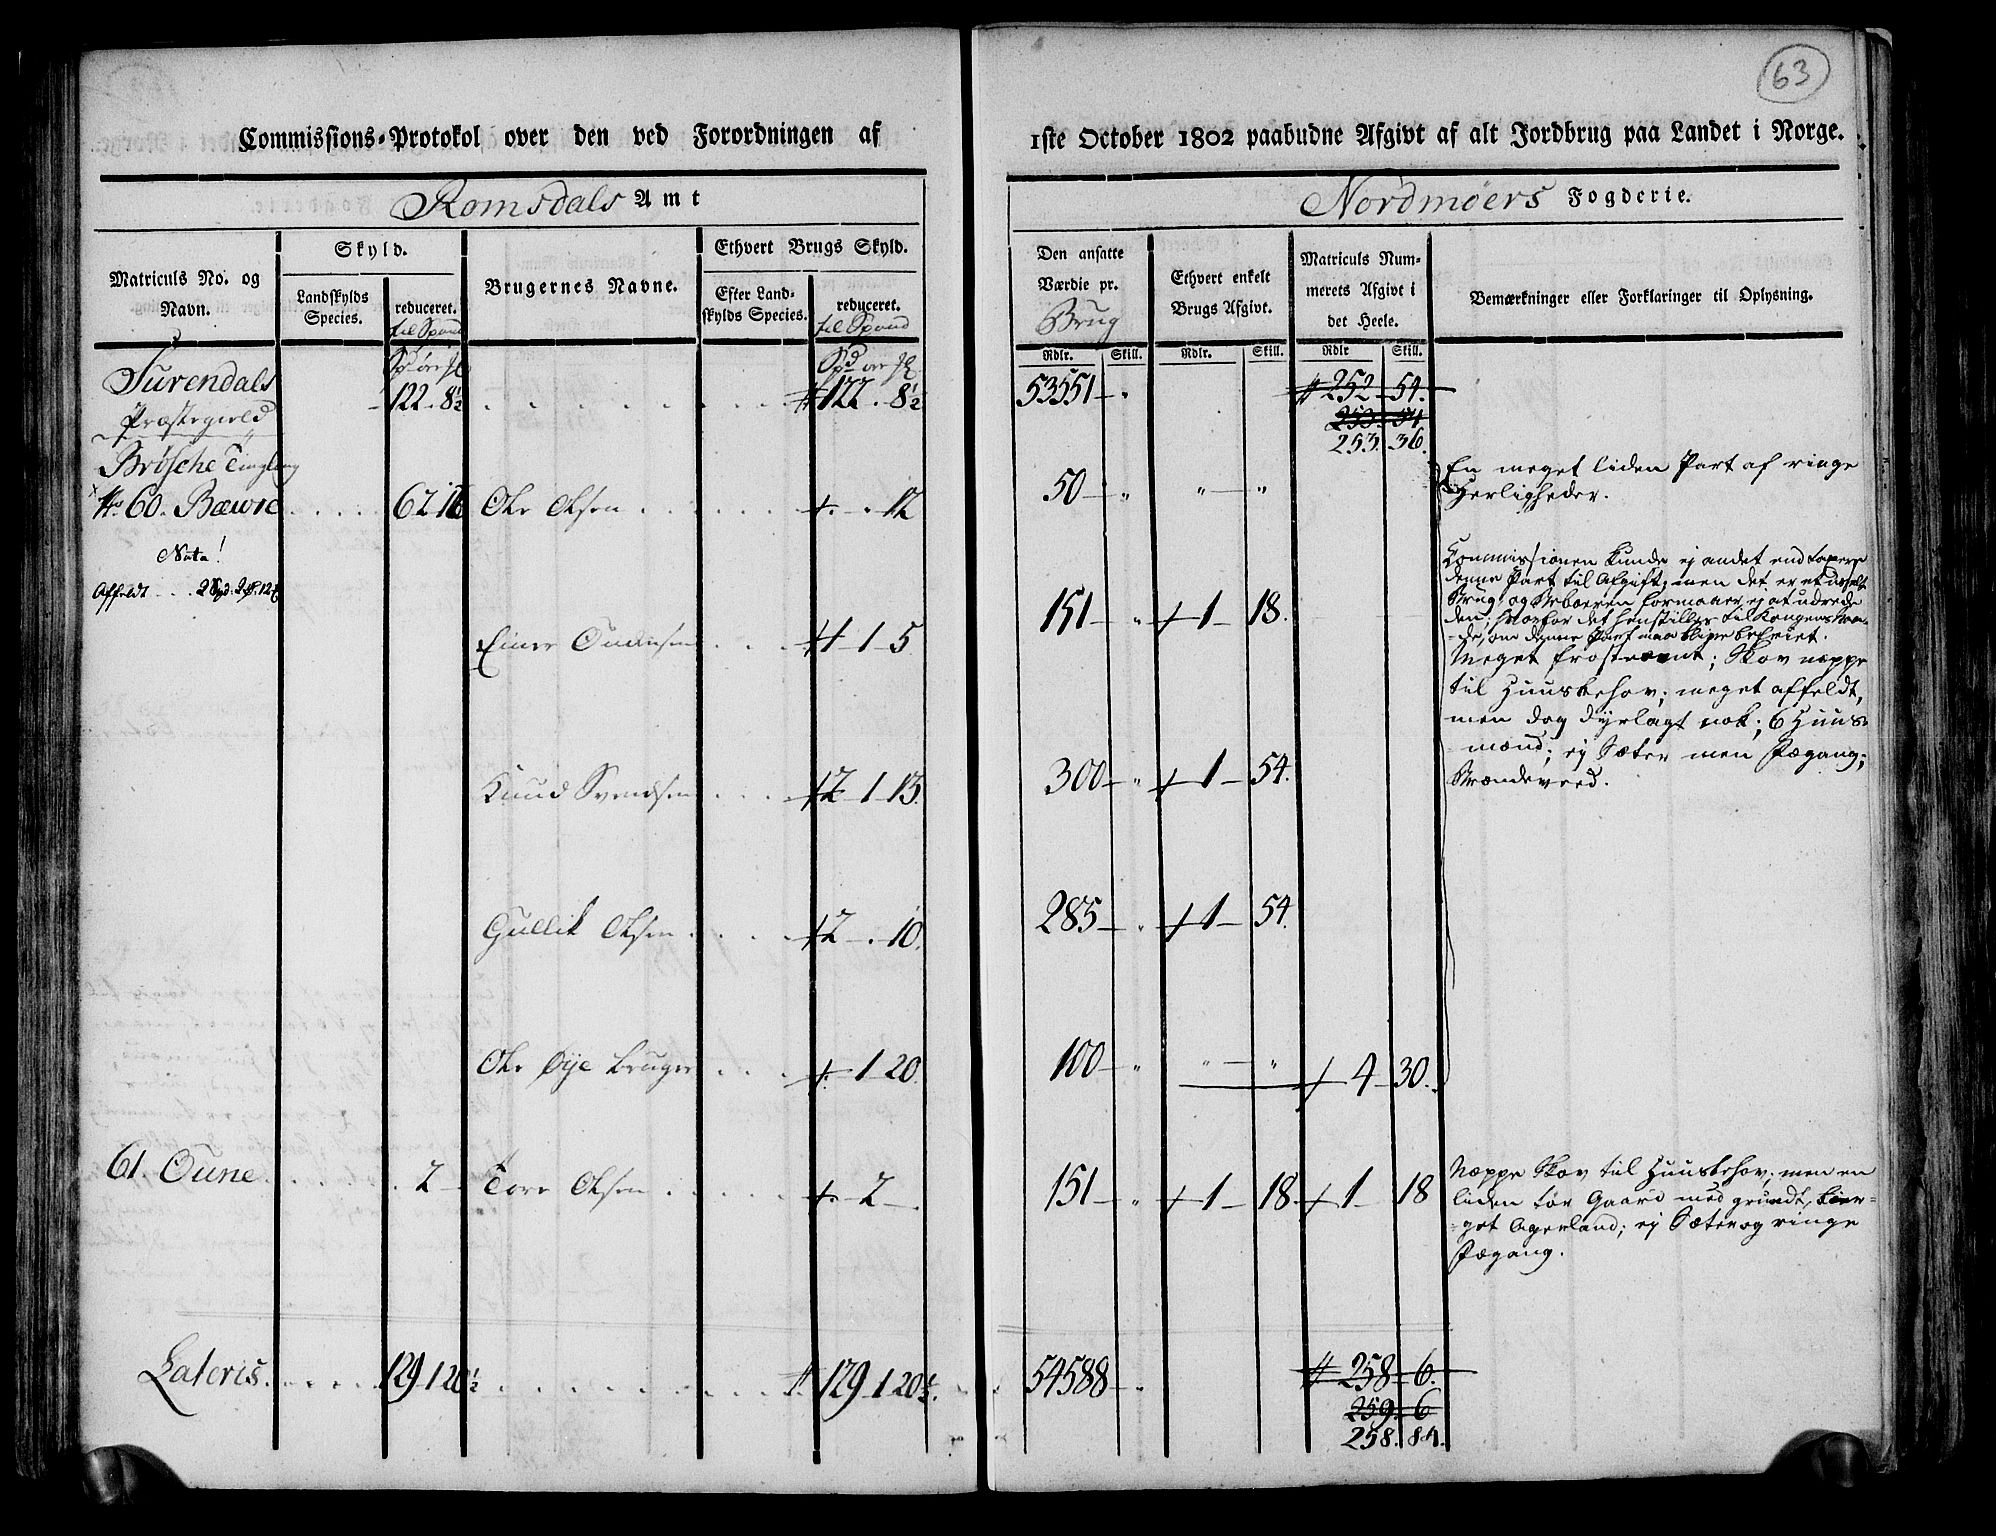 63
Commissions-Protokol over den ved Forordningen af 1ste October 1802 paabudne Afgivt af alt Jordbrug paa Landet i Norge.
Romsdals Amt
Nordmøers Fogderie.
Matriculs No. og Navn.
Skyld.
Landskylds Species.
reduceret.
til Spand
Brugernes Navne.
Ethvert Brugs Skyld.
Efter Landskylds Species.
reduceret.
til Spand
Den ansatte Værdie pr.
Brug
Ethvert enkelt Brugs Afgivt.
Matriculs Nummerets Afgivt i det Heele.
Bemærkninger eller Forklaringer til Oplysning.
Rdlr. Skill. Rdlr. Skill. Rdlr Skill.
Surendals 122 . 8½ 122 . 8½ 53551 „ 252 54.
Præstegield
253. 36.
Brøsche Tinglaug
No. 60. Bæwre Ole Olsen 12 50 „ „ „
En meget liden Part af ringe
Herligheder.
Nota!
Affældt
Commissionen kunde ej andet end taxere
denne Part til Afgift; men det er et usselt
Brug og Beboeren formaaer ej at udrede
den; hvorfor det henstilles til Kongens Naa-
de, om denne Part maa blive befriet.
Einer 1 5 151 „ 1 18.
Meget frostnæmt; Skov næppe
til Huusbehov; meget affældt,
men dog dyrlagt nok; 6 Huus-
mænd; ej Sæter men Fægang;
Brændeveed.
Knud Svendsen 2 1 13. 300 „ 1 54.
Gullik Olsen 2 . 10. 285 „ 1 54.
Ole Øye bruger 1 20. 100 „ „ „ 4 30.
61. Oune 2 Tore Olsen 2 151 „ 1 18 1 18
Næppe Skov til Huusbehov; men en
liden tør Gaard med grundt,
Agerland; ej Sæter og ringe
Fægang.
Lateris 129 1 20½ 129 1 20½. 54588 „ 258 6.
259 6
258. 84.